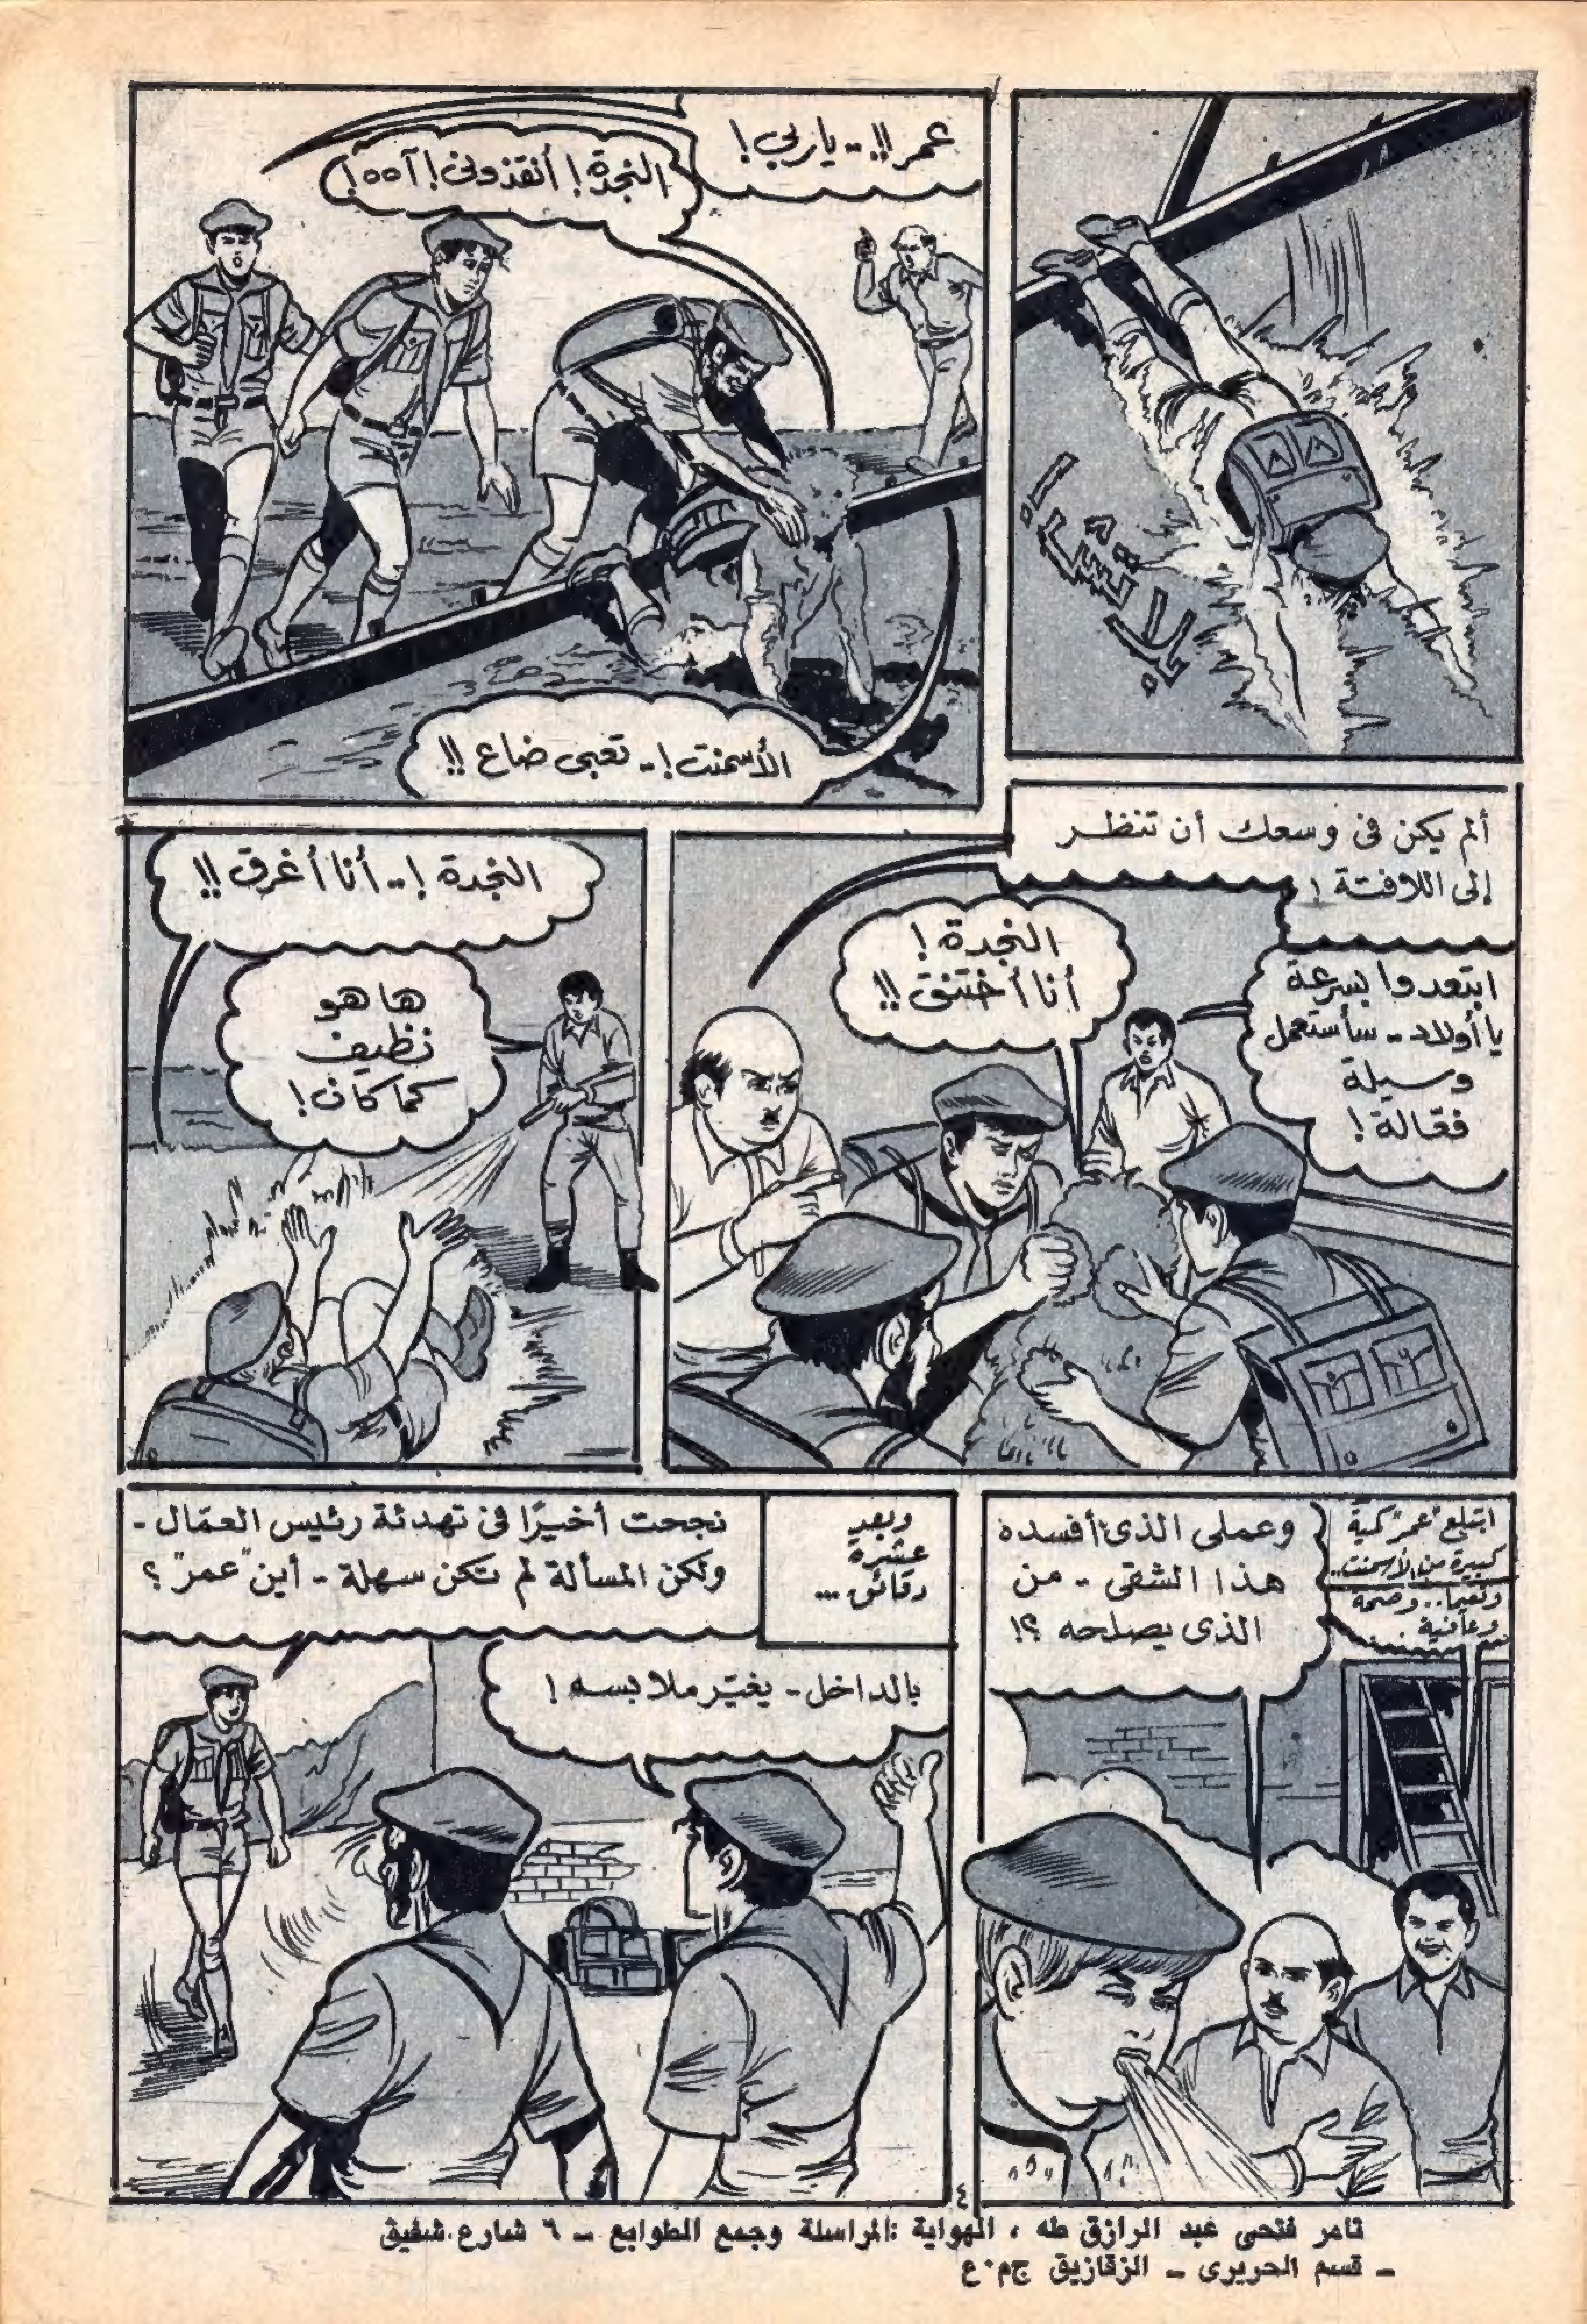 بلاتش!
عمر!!.. ياربي!
النجدة! أنقذوني! آه ه!
الأسمنت!.. تعبى ضاع!!
ألم يكن فى وسعك أن تنظر
إلى اللافتة!
النجدة!
أنا أختنق!!
ابتعدوا بسرعة
يا أولاد.. سأستعمل
وسيلة
فعّالة!
النجدة!.. أنا أغرق!!
ها هو
نظيف
كما كان!
ابتلع "عمر" كمية
كبيرة من الأسمنت..
ونعيما.. وصحة
وعافية
وعملى الذى أفسده
هذا الشقى - من
الذى يصلحه؟!
وبعد
عشرة
دقائق...
نجحت أخيرًا فى تهدئة رئيس العمّال -
ولكن المسألة لم تكن سهلة - أين "عمر"؟
بالداخل - يغيّر ملابسه!
٤
تامر فتحى عبد الرازق طه ، الهواية : المراسلة وجمع الطوابع - ٦ شارع شفيق
- قسم الحريرى - الزقازيق ج٠م٠ع